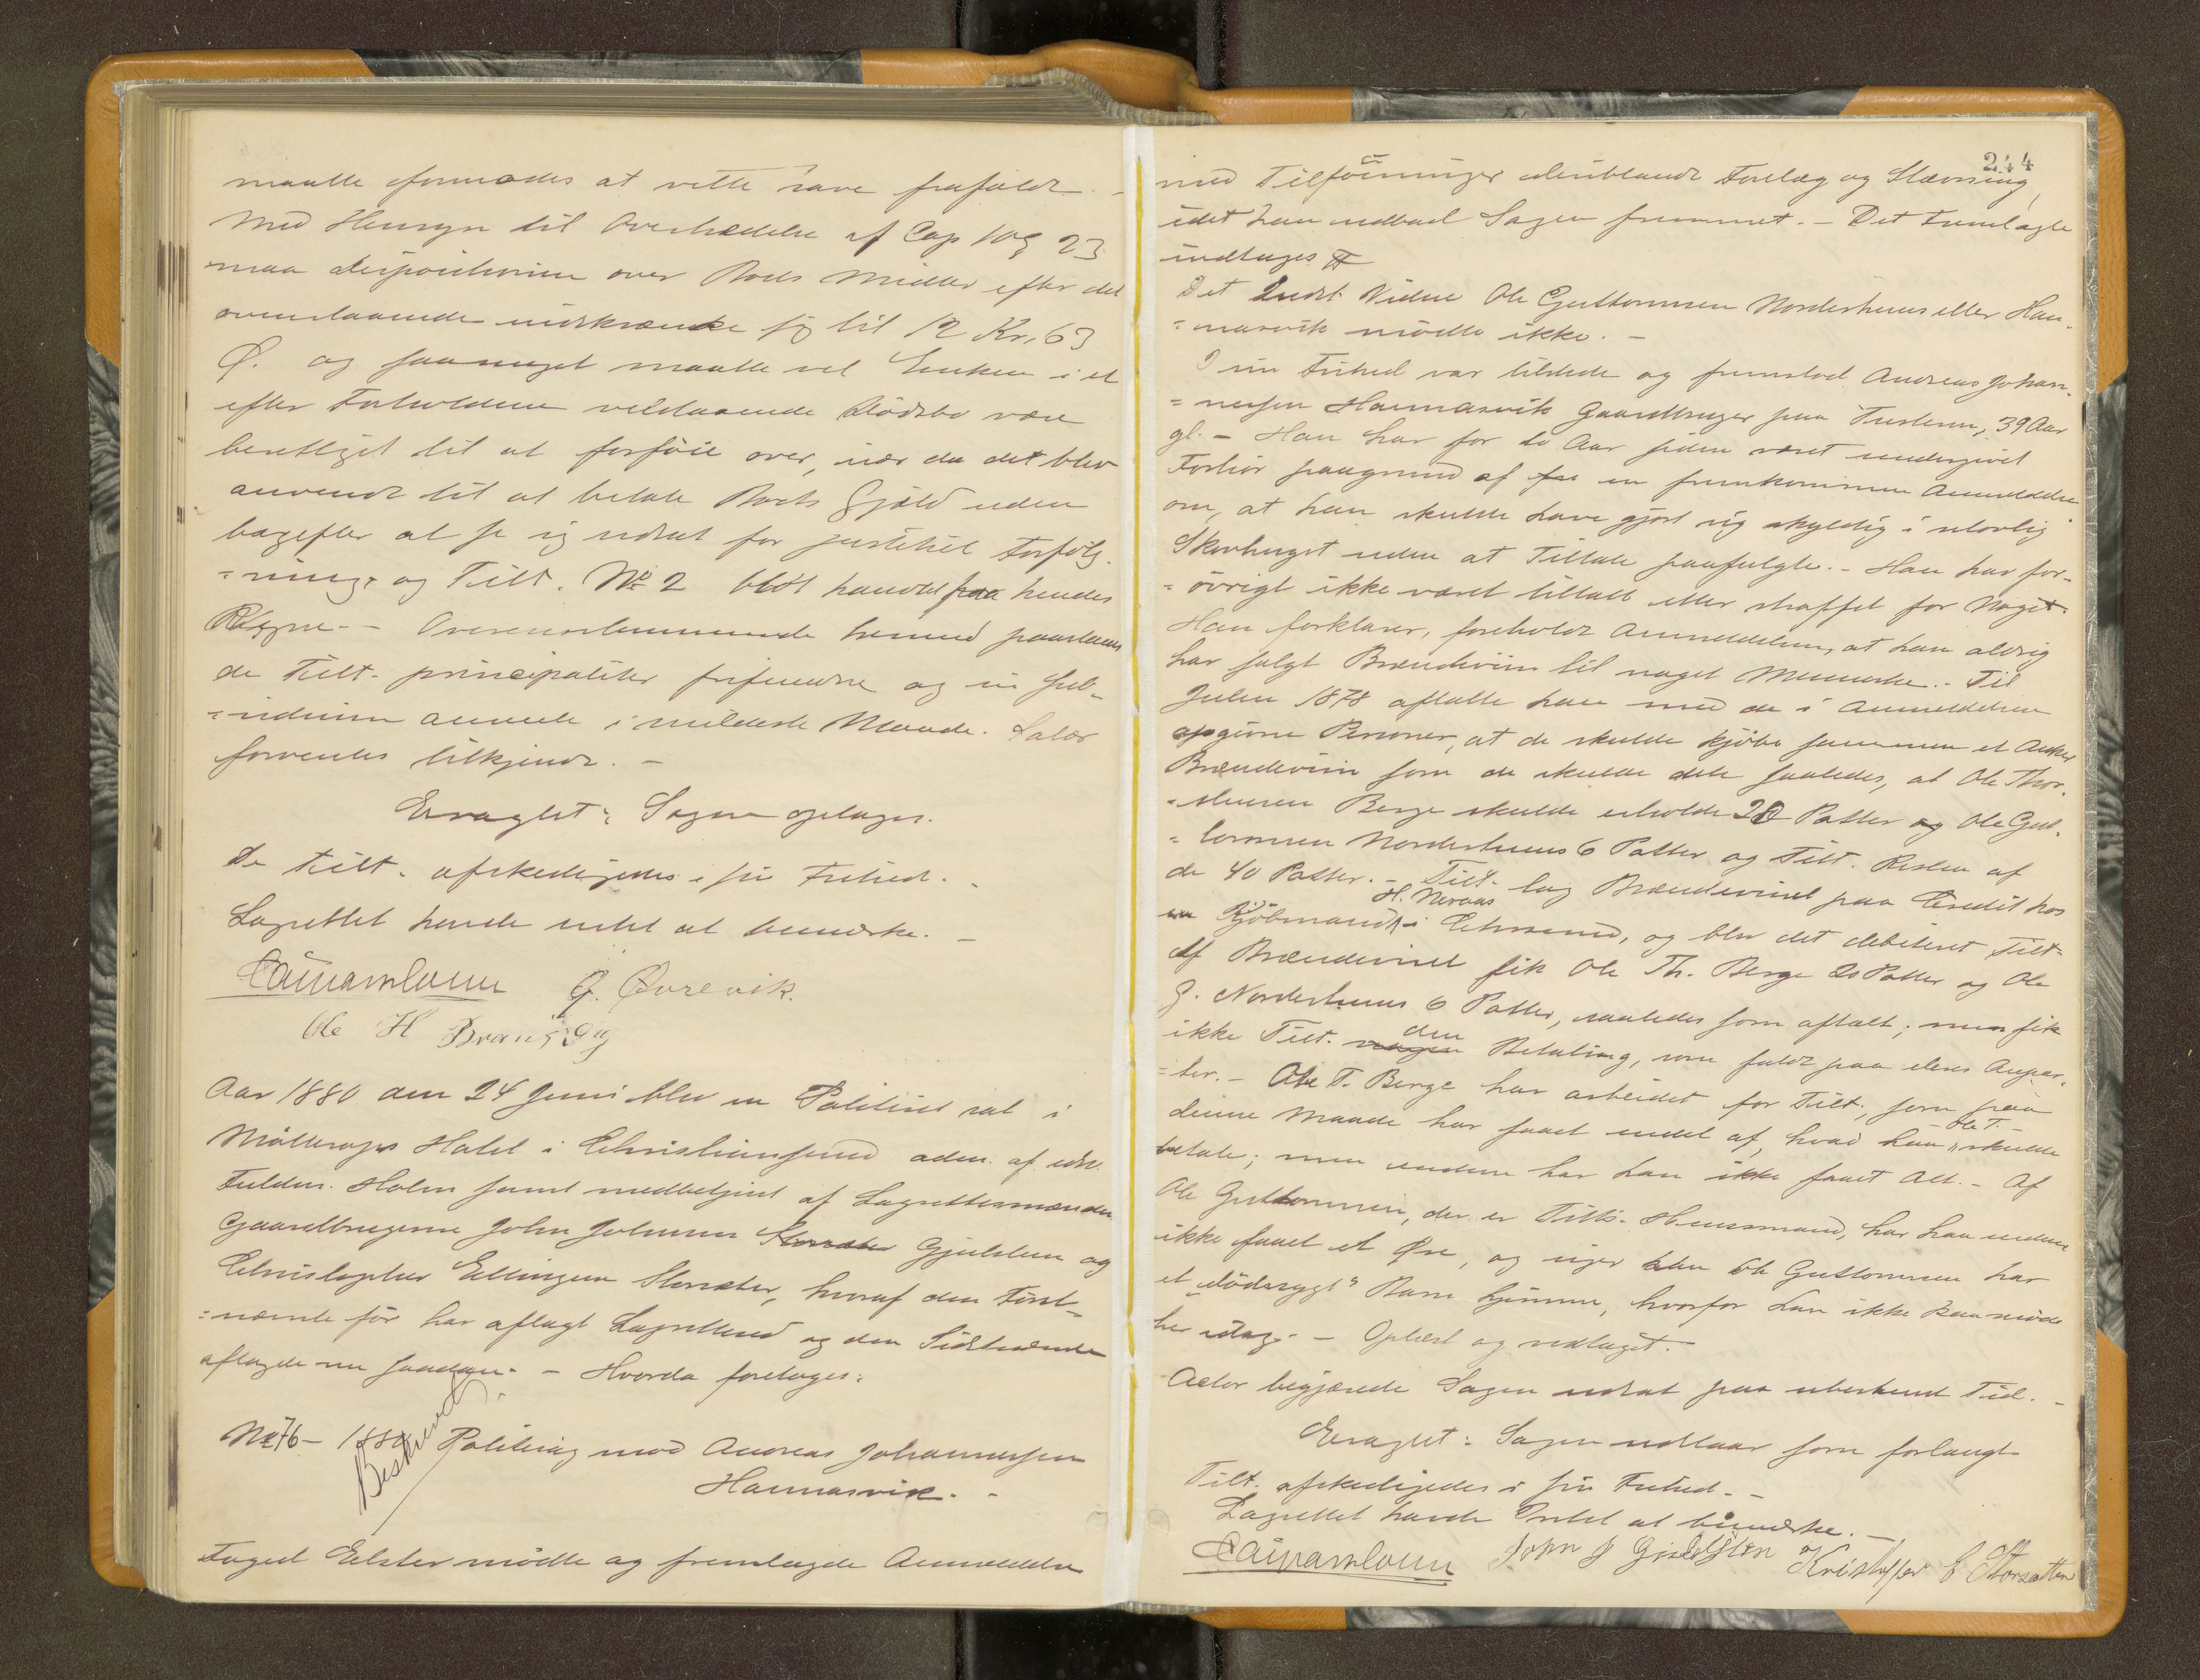 maatte formodes at rette have frafaldt. -
Med Hensyn til Overtrædelse af Cap 10 § 23
maa Dispositionen over Boets Midler efter det
ovenstaaende indskrænke sig til 12 Kr. 63
Ø. og saameget maatte vel Enken i et
efter Forholdene velstaaende Dødsbo være
berettiget til at forføie over, naar da det blev
anvendt til at betale Boets Gjæld uden
bagefter at se sig udsat for justitiel Forfølg-
=ning, og Tilt. No 2 blot handled paa hendes
Vegne. - Overensstemmende hermed paastaaes
de Tilt. principaliter frifundne og in sub-
=sidium anseede i mildeste Maade. Salær
forventes tilkjendt. -
Eragtet: Sagen optages.
De Tilt. afskedigedes i fri Frihed. -
Lagrettet havde intet at bemærke. -
G. Øvrevik.
Ole H
Aar 1880 den 24 Juni blev en Politiret sat i
Møllerops Hotel i Christiansund adm. af edsv.
Fuldm. Holm samt medbetjent af Lagrettesmændene
Gaardbrugerne John Johnsen Storsæter Gjeldsten og
Christopher Ellingsen Storsæter, hvoraf den Først-
=nævnte før har aflagt Lagretteed og den Sidstnævnte
aflagde nu saadan. - Hvorda foretoges:
No 76 - 1880 Politisag mod Andreas Johannessen
Hannasvik. -
Beskrevet
Foged Elster mødte og fremlagde Anmeldelse
244
med Tilføininger deriblandt Forelæg og Stævning,
idet han udbad Sagen fremmet. - Det Fremlagte
indtages
Det Indst. Vidne Ole Guttormsen Norderhuus eller Han-
=nasvik mødte ikke. -
I sin Frihed var tilstede og fremstod Andreas Johan-
=nessen Hannasvik Gaardbruger paa Tusteren, 39 Aar
gl. - Han har for to Aar siden været undergivet
Forhør paagrund af en fremkommen Anmeldelse
om, at han skulde have gjort sig skyldig i ulovlig
Skovhugst uden at Tiltale paafulgte. - Han har for-
=øvrigt ikke været tiltalt eller straffet for Noget.
Han forklarer, foreholdt Anmeldelsen, at han aldrig
har solgt Brændeviin til noget Menneske. - Til
Julen 1878 aftalte han med de i Anmeldelsen
opgivne Personer, at de skulde kjøbe sammen et Anker
Brændeviin som de skulde dele saaledes, at Ole Thor-
=stensen Berge skulde erholde 20 Potter og Ole Gut-
=tormsen Norderhuus 6 Potter og Tilt. Resten af
de 40 Potter. - Tilt. tog Brændevinet paa Credit hos
Kjøbmand H. Neraas i Chrsund, og blev det debiteret Tilt.
Af Brændevinet fik Ole Th. Berge 20 Potter og Ole
G. Norderhuus 6 Potter, saaledes som aftalt; men fik
ikke Tilt. nogen den Betaling, som faldt paa deres Anpar-
=ter. - Ole T. Berge har arbeidet for Tilt., som paa
denne Maade har faaet endel af, hvad han Ole T. skulde
betale; men endnu har han ikke faaet Alt. - Af
Ole Guttormsen, der er Tilts. Huusmand, har han endnu
ikke faaet et Øre, og siger den Ole Guttormsen har
et "dødssygt" Barn hjemme, hvorfor han ikke kan møde
her idag. - Oplæst og vedtaget. -
Actor begjærede Sagen udsat paa ubestemt Tid. -
Eragtet: Sagen udstaar som forlangt
Tilt. afskedigedes i sin Frihed. -
Lagrettet havde Intet at bemærke. -
John J Gjeldsten Kristoffer E Storsætter